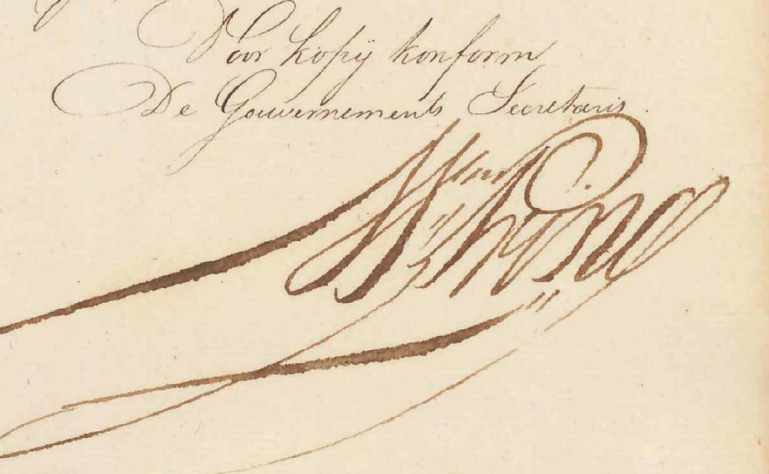 Voor kopij konform
De Gouvernements Secretaris.